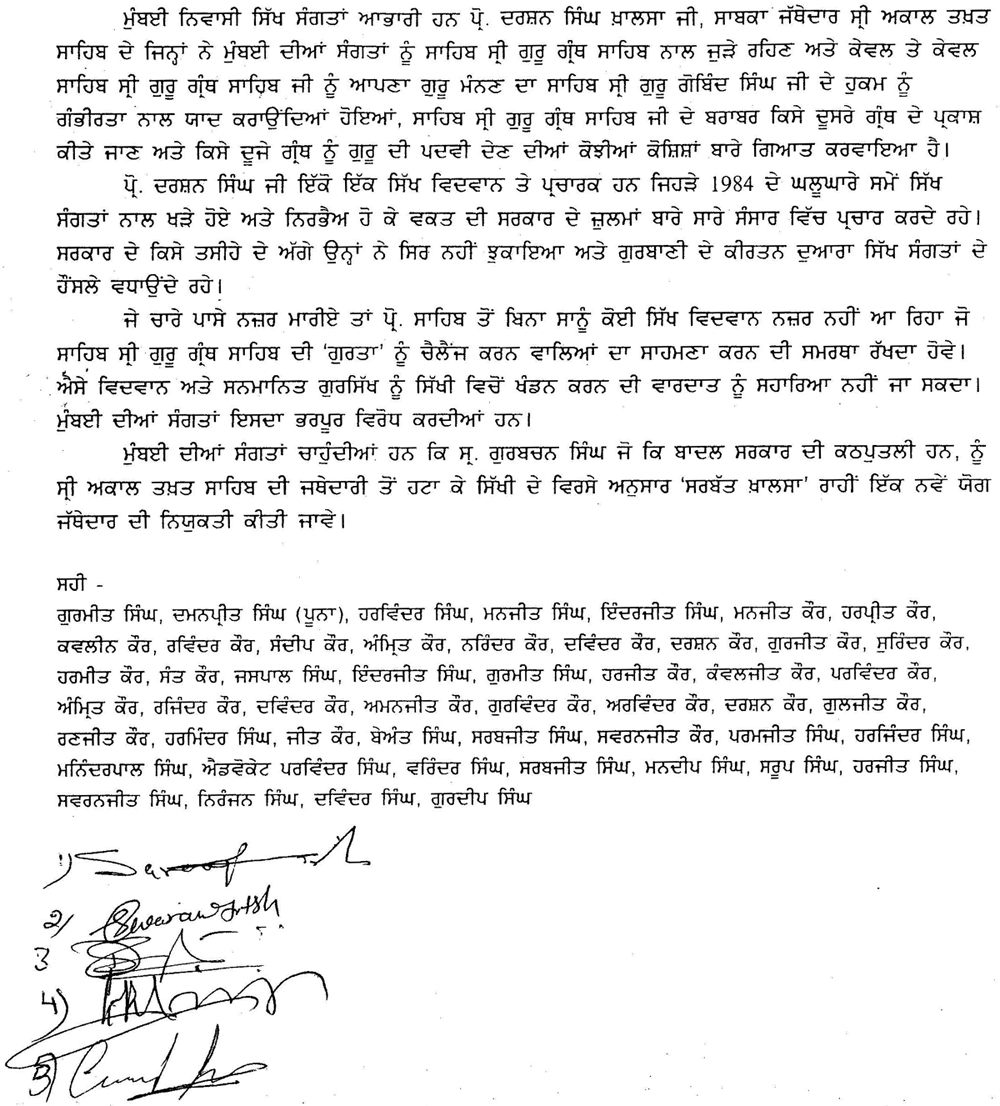 ਮੁੰਬਈ ਨਿਵਾਸੀ ਸਿੱਖ ਸੰਗਤਾਂ ਆਭਾਰੀ ਹਨ ਪ੍ਰੋ. ਦਰਸ਼ਨ ਸਿੰਘ ਖ਼ਾਲਸਾ ਜੀ, ਸਾਬਕਾ ਜੱਥੇਦਾਰ ਸ੍ਰੀ ਅਕਾਲ ਤਖ਼ਤ
ਸਾਹਿਬ ਦੇ ਜਿਨ੍ਹਾਂ ਨੇ ਮੁੰਬਈ ਦੀਆਂ ਸੰਗਤਾਂ ਨੂੰ ਸਾਹਿਬ ਸ੍ਰੀ ਗੁਰੂ ਗ੍ਰੰਥ ਸਾਹਿਬ ਨਾਲ ਜੁੜੇ ਰਹਿਣ ਅਤੇ ਕੇਵਲ ਤੇ ਕੇਵਲ
ਸਾਹਿਬ ਸ੍ਰੀ ਗੁਰੂ ਗ੍ਰੰਥ ਸਾਹਿਬ ਜੀ ਨੂੰ ਆਪਣਾ ਗੁਰੂ ਮੰਨਣ ਦਾ ਸਾਹਿਬ ਸ੍ਰੀ ਗੁਰੂ ਗੋਬਿੰਦ ਸਿੰਘ ਜੀ ਦੇ ਹੁਕਮ ਨੂੰ
ਗੰਭੀਰਤਾ ਨਾਲ ਯਾਦ ਕਰਾਉਂਦਿਆਂ ਹੋਇਆਂ, ਸਾਹਿਬ ਸ੍ਰੀ ਗੁਰੂ ਗ੍ਰੰਥ ਸਾਹਿਬ ਜੀ ਦੇ ਬਰਾਬਰ ਕਿਸੇ ਦੂਸਰੇ ਗ੍ਰੰਥ ਦੇ ਪ੍ਰਕਾਸ਼
ਕੀਤੇ ਜਾਣ ਅਤੇ ਕਿਸੇ ਦੂਜੇ ਗ੍ਰੰਥ ਨੂੰ ਗੁਰੂ ਦੀ ਪਦਵੀ ਦੇਣ ਦੀਆਂ ਕੋਝੀਆਂ ਕੋਸ਼ਿਸ਼ਾਂ ਬਾਰੇ ਗਿਆਤ ਕਰਵਾਇਆ ਹੈ।
ਪ੍ਰੋ. ਦਰਸ਼ਨ ਸਿੰਘ ਜੀ ਇੱਕੋ ਇੱਕ ਸਿੱਖ ਵਿਦਵਾਨ ਤੇ ਪ੍ਰਚਾਰਕ ਹਨ ਜਿਹੜੇ 1984 ਦੇ ਘਲੂਘਾਰੇ ਸਮੇਂ ਸਿੱਖ
ਸੰਗਤਾਂ ਨਾਲ ਖੜੇ ਹੋਏ ਅਤੇ ਨਿਰਭੈਅ ਹੋ ਕੇ ਵਕਤ ਦੀ ਸਰਕਾਰ ਦੇ ਜ਼ੁਲਮਾਂ ਬਾਰੇ ਸਾਰੇ ਸੰਸਾਰ ਵਿੱਚ ਪ੍ਰਚਾਰ ਕਰਦੇ ਰਹੇ।
ਸਰਕਾਰ ਦੇ ਕਿਸੇ ਤਸੀਹੇ ਦੇ ਅੱਗੇ ਉਨ੍ਹਾਂ ਨੇ ਸਿਰ ਨਹੀਂ ਝੁਕਾਇਆ ਅਤੇ ਗੁਰਬਾਣੀ ਦੇ ਕੀਰਤਨ ਦੁਆਰਾ ਸਿੱਖ ਸੰਗਤਾਂ ਦੇ
ਹੌਂਸਲੇ ਵਧਾਉਂਦੇ ਰਹੇ।
ਜੇ ਚਾਰੇ ਪਾਸੇ ਨਜ਼ਰ ਮਾਰੀਏ ਤਾਂ ਪ੍ਰੋ. ਸਾਹਿਬ ਤੋਂ ਬਿਨਾ ਸਾਨੂੰ ਕੋਈ ਸਿੱਖ ਵਿਦਵਾਨ ਨਜ਼ਰ ਨਹੀਂ ਆ ਰਿਹਾ ਜੋ
ਸਾਹਿਬ ਸ੍ਰੀ ਗੁਰੂ ਗ੍ਰੰਥ ਸਾਹਿਬ ਦੀ ‘ਗੁਰਤਾ’ ਨੂੰ ਚੈਲੈਂਜ ਕਰਨ ਵਾਲਿਆਂ ਦਾ ਸਾਹਮਣਾ ਕਰਨ ਦੀ ਸਮਰਥਾ ਰੱਖਦਾ ਹੋਵੇ।
ਐਸੇ ਵਿਦਵਾਨ ਅਤੇ ਸਨਮਾਨਿਤ ਗੁਰਸਿੱਖ ਨੂੰ ਸਿੱਖੀ ਵਿਚੋਂ ਖੰਡਨ ਕਰਨ ਦੀ ਵਾਰਦਾਤ ਨੂੰ ਸਹਾਰਿਆ ਨਹੀਂ ਜਾ ਸਕਦਾ।
ਮੁੰਬਈ ਦੀਆਂ ਸੰਗਤਾਂ ਇਸਦਾ ਭਰਪੂਰ ਵਿਰੋਧ ਕਰਦੀਆਂ ਹਨ।
ਮੁੰਬਈ ਦੀਆਂ ਸੰਗਤਾਂ ਚਾਹੁੰਦੀਆਂ ਹਨ ਕਿ ਸ੍ਰ. ਗੁਰਬਚਨ ਸਿੰਘ ਜੋ ਕਿ ਬਾਦਲ ਸਰਕਾਰ ਦੀ ਕਠਪੁਤਲੀ ਹਨ, ਨੂੰ
ਸ੍ਰੀ ਅਕਾਲ ਤਖ਼ਤ ਸਾਹਿਬ ਦੀ ਜਥੇਦਾਰੀ ਤੋਂ ਹਟਾ ਕੇ ਸਿੱਖੀ ਦੇ ਵਿਰਸੇ ਅਨੁਸਾਰ ‘ਸਰਬੱਤ ਖ਼ਾਲਸਾ’ ਰਾਹੀਂ ਇੱਕ ਨਵੇਂ ਯੋਗ
ਜੱਥੇਦਾਰ ਦੀ ਨਿਯੁਕਤੀ ਕੀਤੀ ਜਾਵੇ।
ਸਹੀ -
ਗੁਰਮੀਤ ਸਿੰਘ, ਦਮਨਪ੍ਰੀਤ ਸਿੰਘ (ਪੂਨਾ), ਹਰਵਿੰਦਰ ਸਿੰਘ, ਮਨਜੀਤ ਸਿੰਘ, ਇੰਦਰਜੀਤ ਸਿੰਘ, ਮਨਜੀਤ ਕੌਰ, ਹਰਪ੍ਰੀਤ ਕੌਰ,
ਕਵਲੀਨ ਕੌਰ, ਰਵਿੰਦਰ ਕੌਰ, ਸੰਦੀਪ ਕੌਰ, ਅੰਮ੍ਰਿਤ ਕੌਰ, ਨਰਿੰਦਰ ਕੌਰ, ਦਵਿੰਦਰ ਕੌਰ, ਦਰਸ਼ਨ ਕੌਰ, ਗੁਰਜੀਤ ਕੌਰ, ਸੁਰਿੰਦਰ ਕੌਰ,
ਹਰਮੀਤ ਕੌਰ, ਸੰਤ ਕੌਰ, ਜਸਪਾਲ ਸਿੰਘ, ਇੰਦਰਜੀਤ ਸਿੰਘ, ਗੁਰਮੀਤ ਸਿੰਘ, ਹਰਜੀਤ ਕੌਰ, ਕੰਵਲਜੀਤ ਕੌਰ, ਪਰਵਿੰਦਰ ਕੌਰ,
ਅੰਮ੍ਰਿਤ ਕੌਰ, ਰਜਿੰਦਰ ਕੌਰ, ਦਵਿੰਦਰ ਕੌਰ, ਅਮਨਜੀਤ ਕੌਰ, ਗੁਰਵਿੰਦਰ ਕੌਰ, ਅਰਵਿੰਦਰ ਕੌਰ, ਦਰਸ਼ਨ ਕੌਰ, ਗੁਲਜੀਤ ਕੌਰ,
ਰਣਜੀਤ ਕੌਰ, ਹਰਮਿੰਦਰ ਸਿੰਘ, ਜੀਤ ਕੌਰ, ਬੇਅੰਤ ਸਿੰਘ, ਸਰਬਜੀਤ ਸਿੰਘ, ਸਵਰਨਜੀਤ ਕੌਰ, ਪਰਮਜੀਤ ਸਿੰਘ, ਹਰਜਿੰਦਰ ਸਿੰਘ,
ਮਨਿੰਦਰਪਾਲ ਸਿੰਘ, ਐਡਵੋਕੇਟ ਪਰਵਿੰਦਰ ਸਿੰਘ, ਵਰਿੰਦਰ ਸਿੰਘ, ਸਰਬਜੀਤ ਸਿੰਘ, ਮਨਦੀਪ ਸਿੰਘ, ਸਰੂਪ ਸਿੰਘ, ਹਰਜੀਤ ਸਿੰਘ,
ਸਵਰਨਜੀਤ ਸਿੰਘ, ਨਿਰੰਜਨ ਸਿੰਘ, ਦਵਿੰਦਰ ਸਿੰਘ, ਗੁਰਦੀਪ ਸਿੰਘ
1)
2)
3
4)
5)